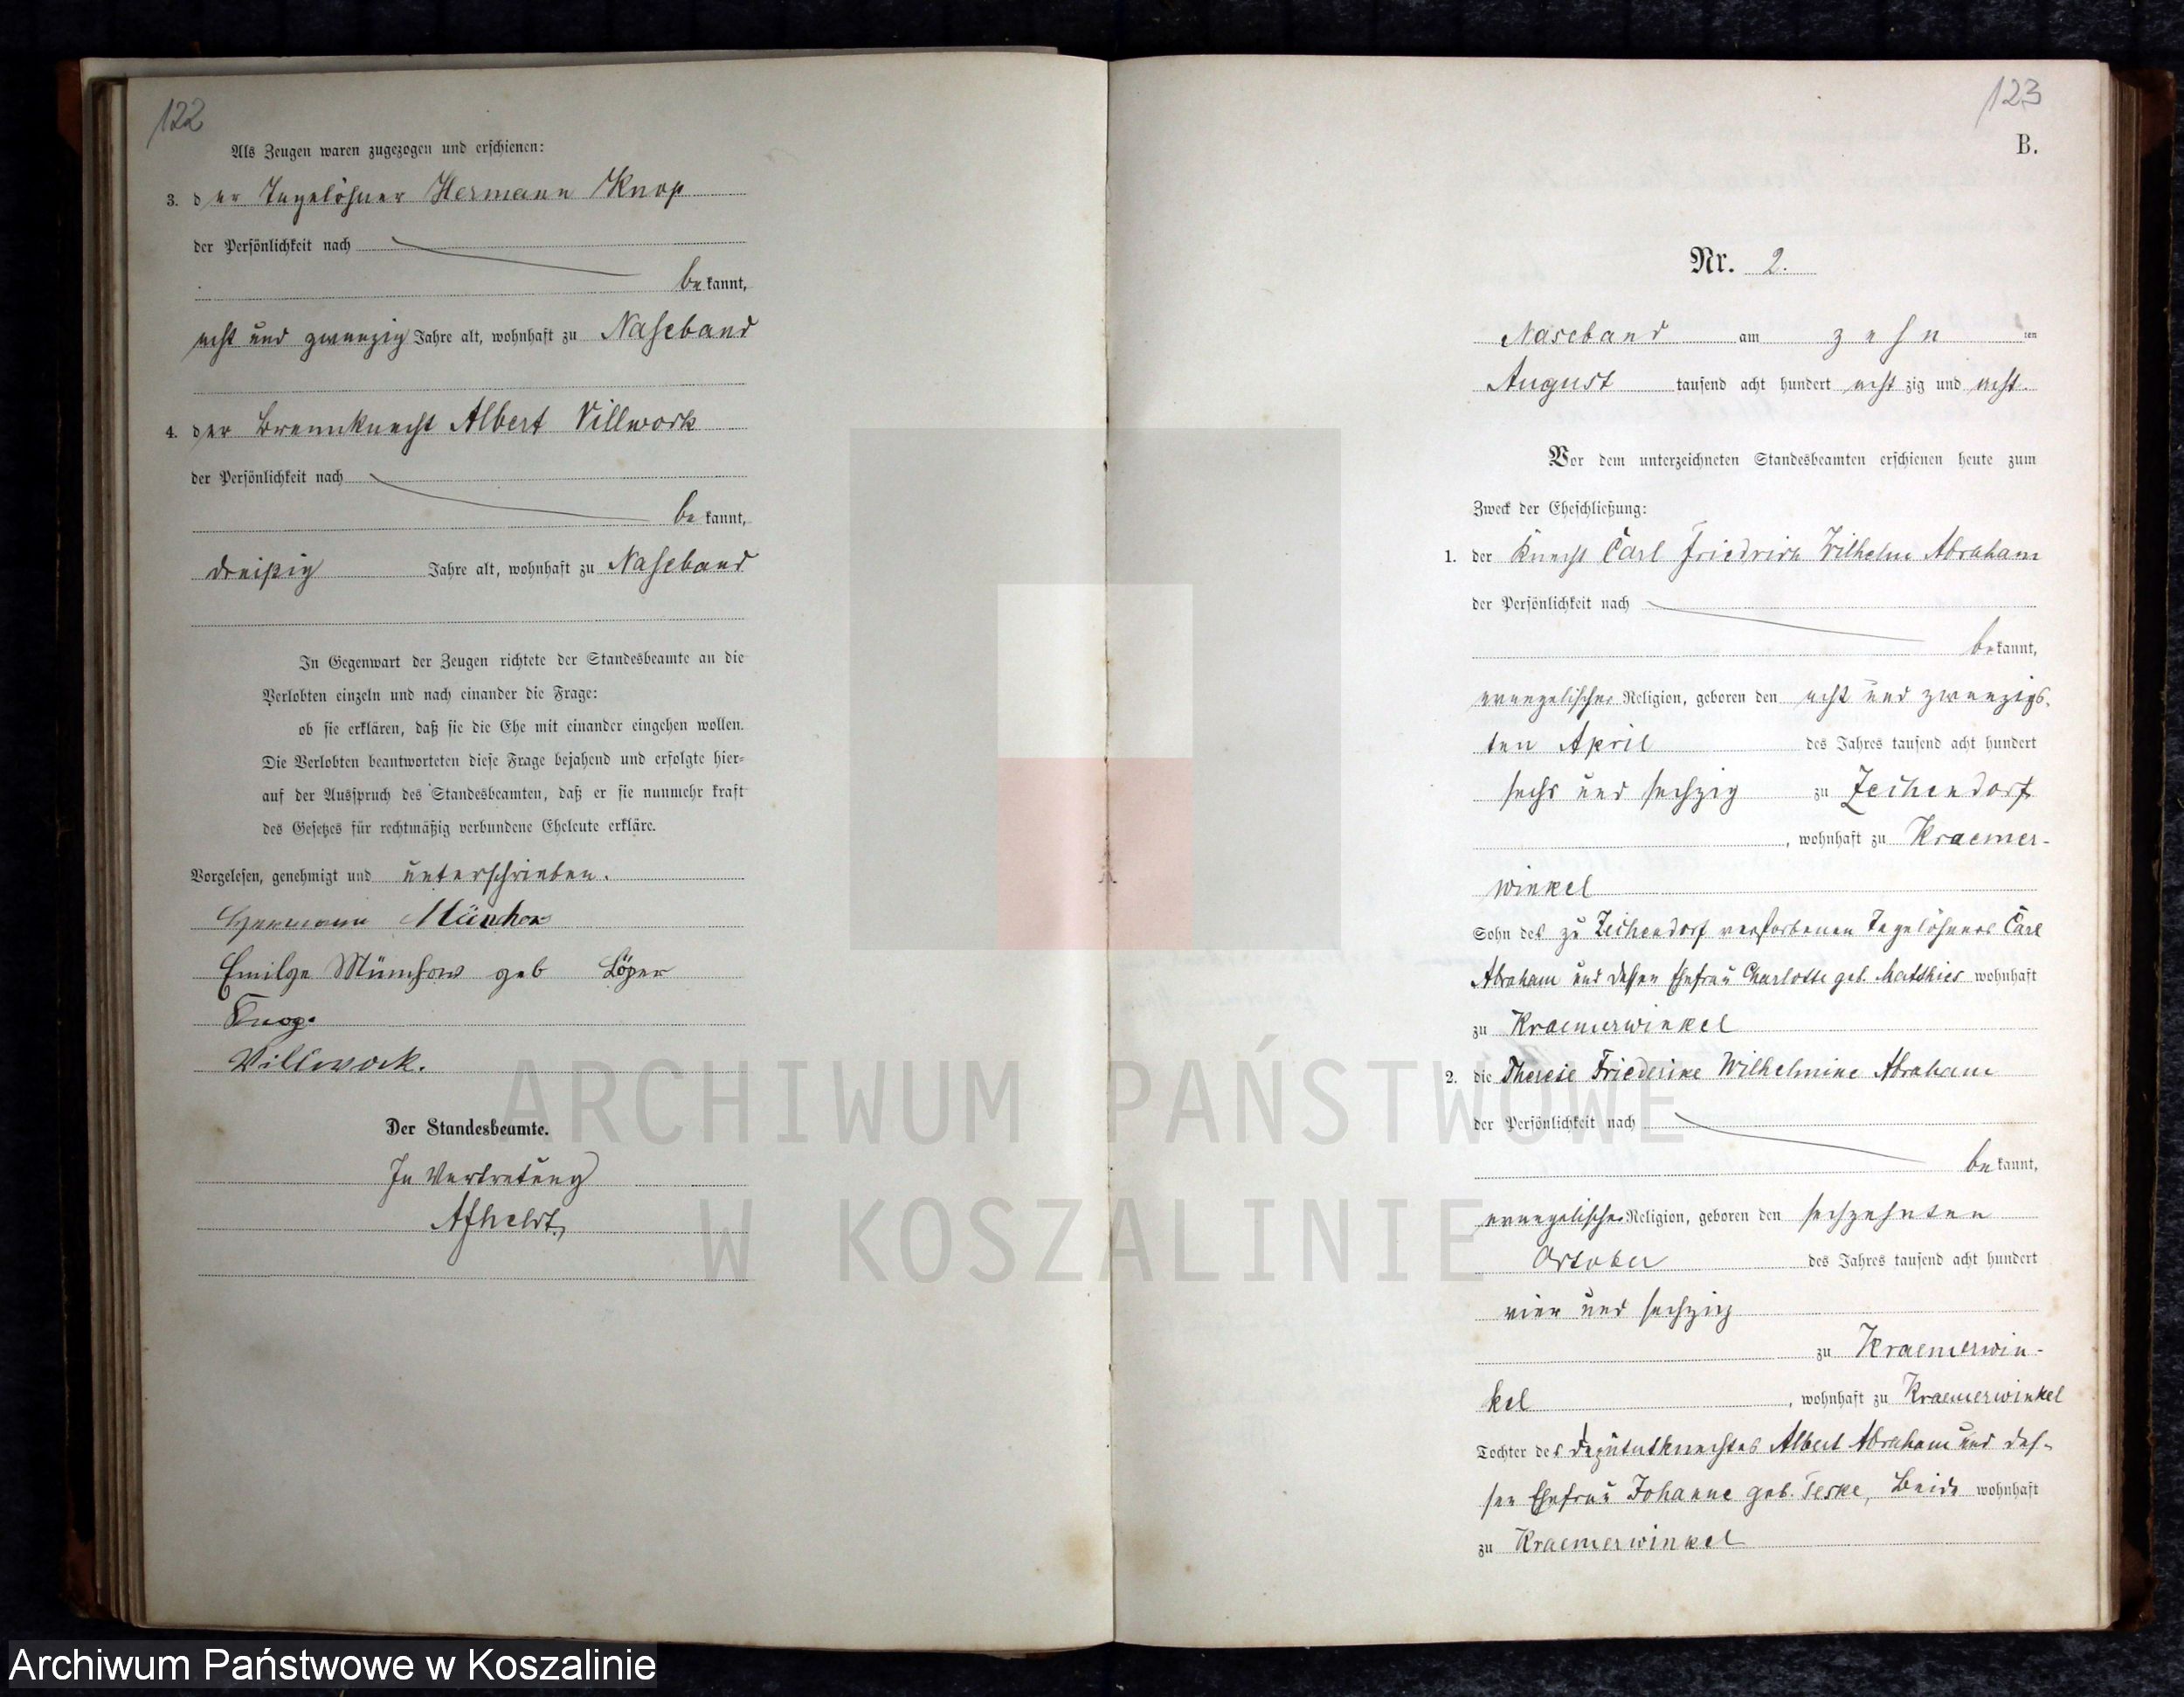 122
Als Zeugen waren zugezogen und erschienen:
3. der Tagelöhner Hermann Knop
der Persönlichkeit nach
bekannt,
acht und zwanzig Jahre alt, wohnhaft zu Naseband
4. der Brennknecht Albert Villwock
der Persönlichkeit nach
bekannt,
dreißig Jahre alt, wohnhaft zu Naseband
In Gegenwart der Zeugen richtete der Standesbeamte an die
Verlobten einzeln und nach einander die Frage:
ob sie erklären, daß sie die Ehe mit einander eingehen wollen.
Die Verlobten beantworteten diese Frage bejahend und erfolgte hier=
auf der Ausspruch des Standesbeamten, daß er sie nunmehr kraft
des Gesetzes für rechtmäßig verbundene Eheleute erkläre.
Vorgelesen, genehmigt und unterschrieben.
Hermann Münchow
Emilge Münchow geb Löper
Knop.
Villwock.
Der Standesbeamte.
In Vertretung
Afheldt.
123
B.
Nr. 2.
Naseband am zehn ten
August tausend acht hundert acht zig und acht.
Vor dem unterzeichneten Standesbeamten erschienen heute zum
Zweck der Eheschließung:
1. der Knecht Carl Friedrich Wilhelm Abraham
der Persönlichkeit nach
bekannt,
evangelischer Religion, geboren den acht und zwanzigs-
ten April des Jahres tausend acht hundert
sechs und sechzig zu Zechendorf
, wohnhaft zu Kraemer-
winkel
Sohn des zu Zechendorf verstorbenen Tagelöhners Carl
Abraham und dessen Ehefrau Charlotte geb. Matthies wohnhaft
zu Kraemerwinkel
2. die Therese Friederike Wilhelmine Abraham
der Persönlichkeit nach
bekannt,
evangelischer Religion, geboren den sechzehnten
October des Jahres tausend acht hundert
vier und sechzig
zu Kraemerwin-
kel , wohnhaft zu Kraemerwinkel
Tochter des Deputatknechtes Albert Abraham und des-
sen Ehefrau Johanne geb. Teske, Beide wohnhaft
zu Kraemerwinkel
ARCHIWUM PAŃSTWOWE
W KOSZALINIE
Archiwum Państwowe w Koszalinie